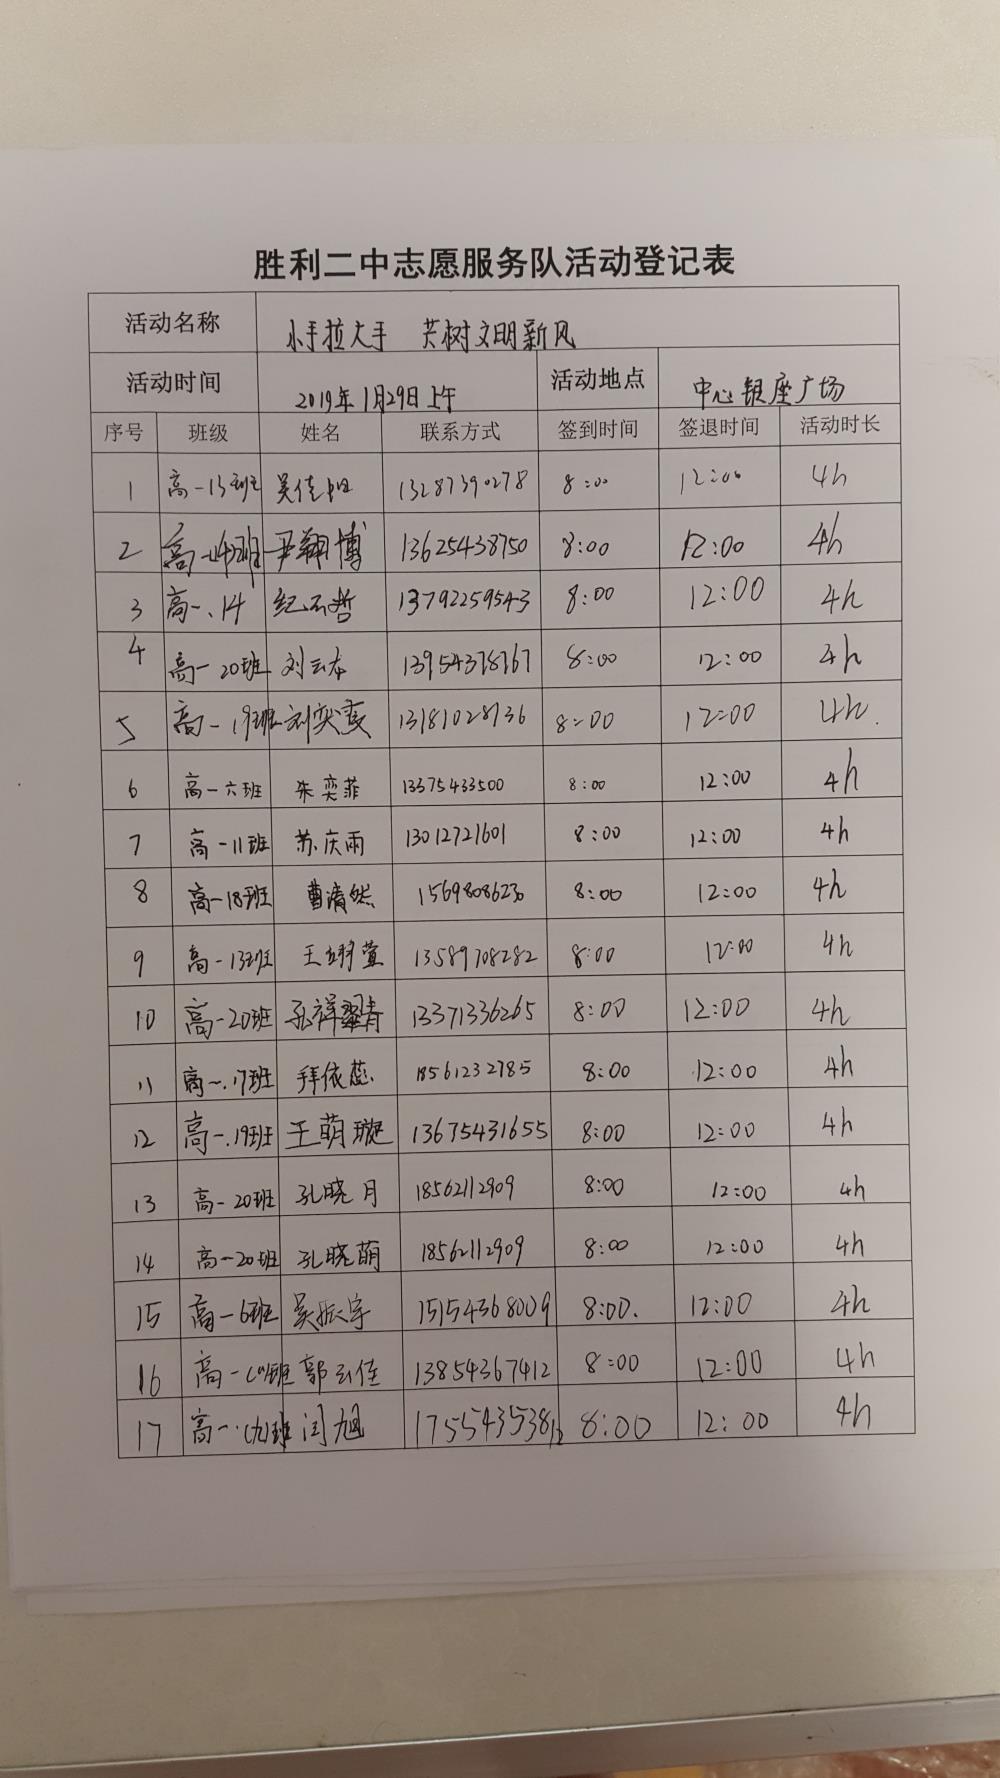 胜利二中志愿服务队活动登记表
活动名称 小手拉大手 共树文明新风
活动时间 2019年1月29日上午 活动地点 中心银座广场
序号 班级 姓名 联系方式 签到时间 签退时间 活动时长
1 高一13班 吴佳 13287390278 8:00 12:00 4h
2 高一 班 尹翔博 13625438750 8:00 12:00 4h
3 高一.14 纪 哲 13792259543 8:00 12:00 4h
4 高一20班 刘云 13954378767 8:00 12:00 4h
5 高一19班 刘奕 13181028736 8:00 12:00 4h.
6 高一六班 朱奕菲 13375433500 8:00 12:00 4h
7 高一11班 苏庆雨 13012721601 8:00 12:00 4h
8 高一18班 曹清然 15698086230 8:00 12:00 4h
9 高一13班 王翊萱 13589708282 8:00 12:00 4h
10 高一20班 孔祥 13371336265 8:00 12:00 4h
11 高一.17班 拜依蕊 18561232785 8:00 12:00 4h
12 高一.19班 王萌璇 13675431655 8:00 12:00 4h
13 高一20班 孔晓月 18562112909 8:00 12:00 4h
14 高一20班 孔晓萌 18562112909 8:00 12:00 4h
15 高一6班 吴振宇 15154368009 8:00. 12:00 4h
16 高一 班 郭云佳 13854367412 8:00 12:00 4h
17 高一.(九)班 闫旭 8:00 12:00 4h